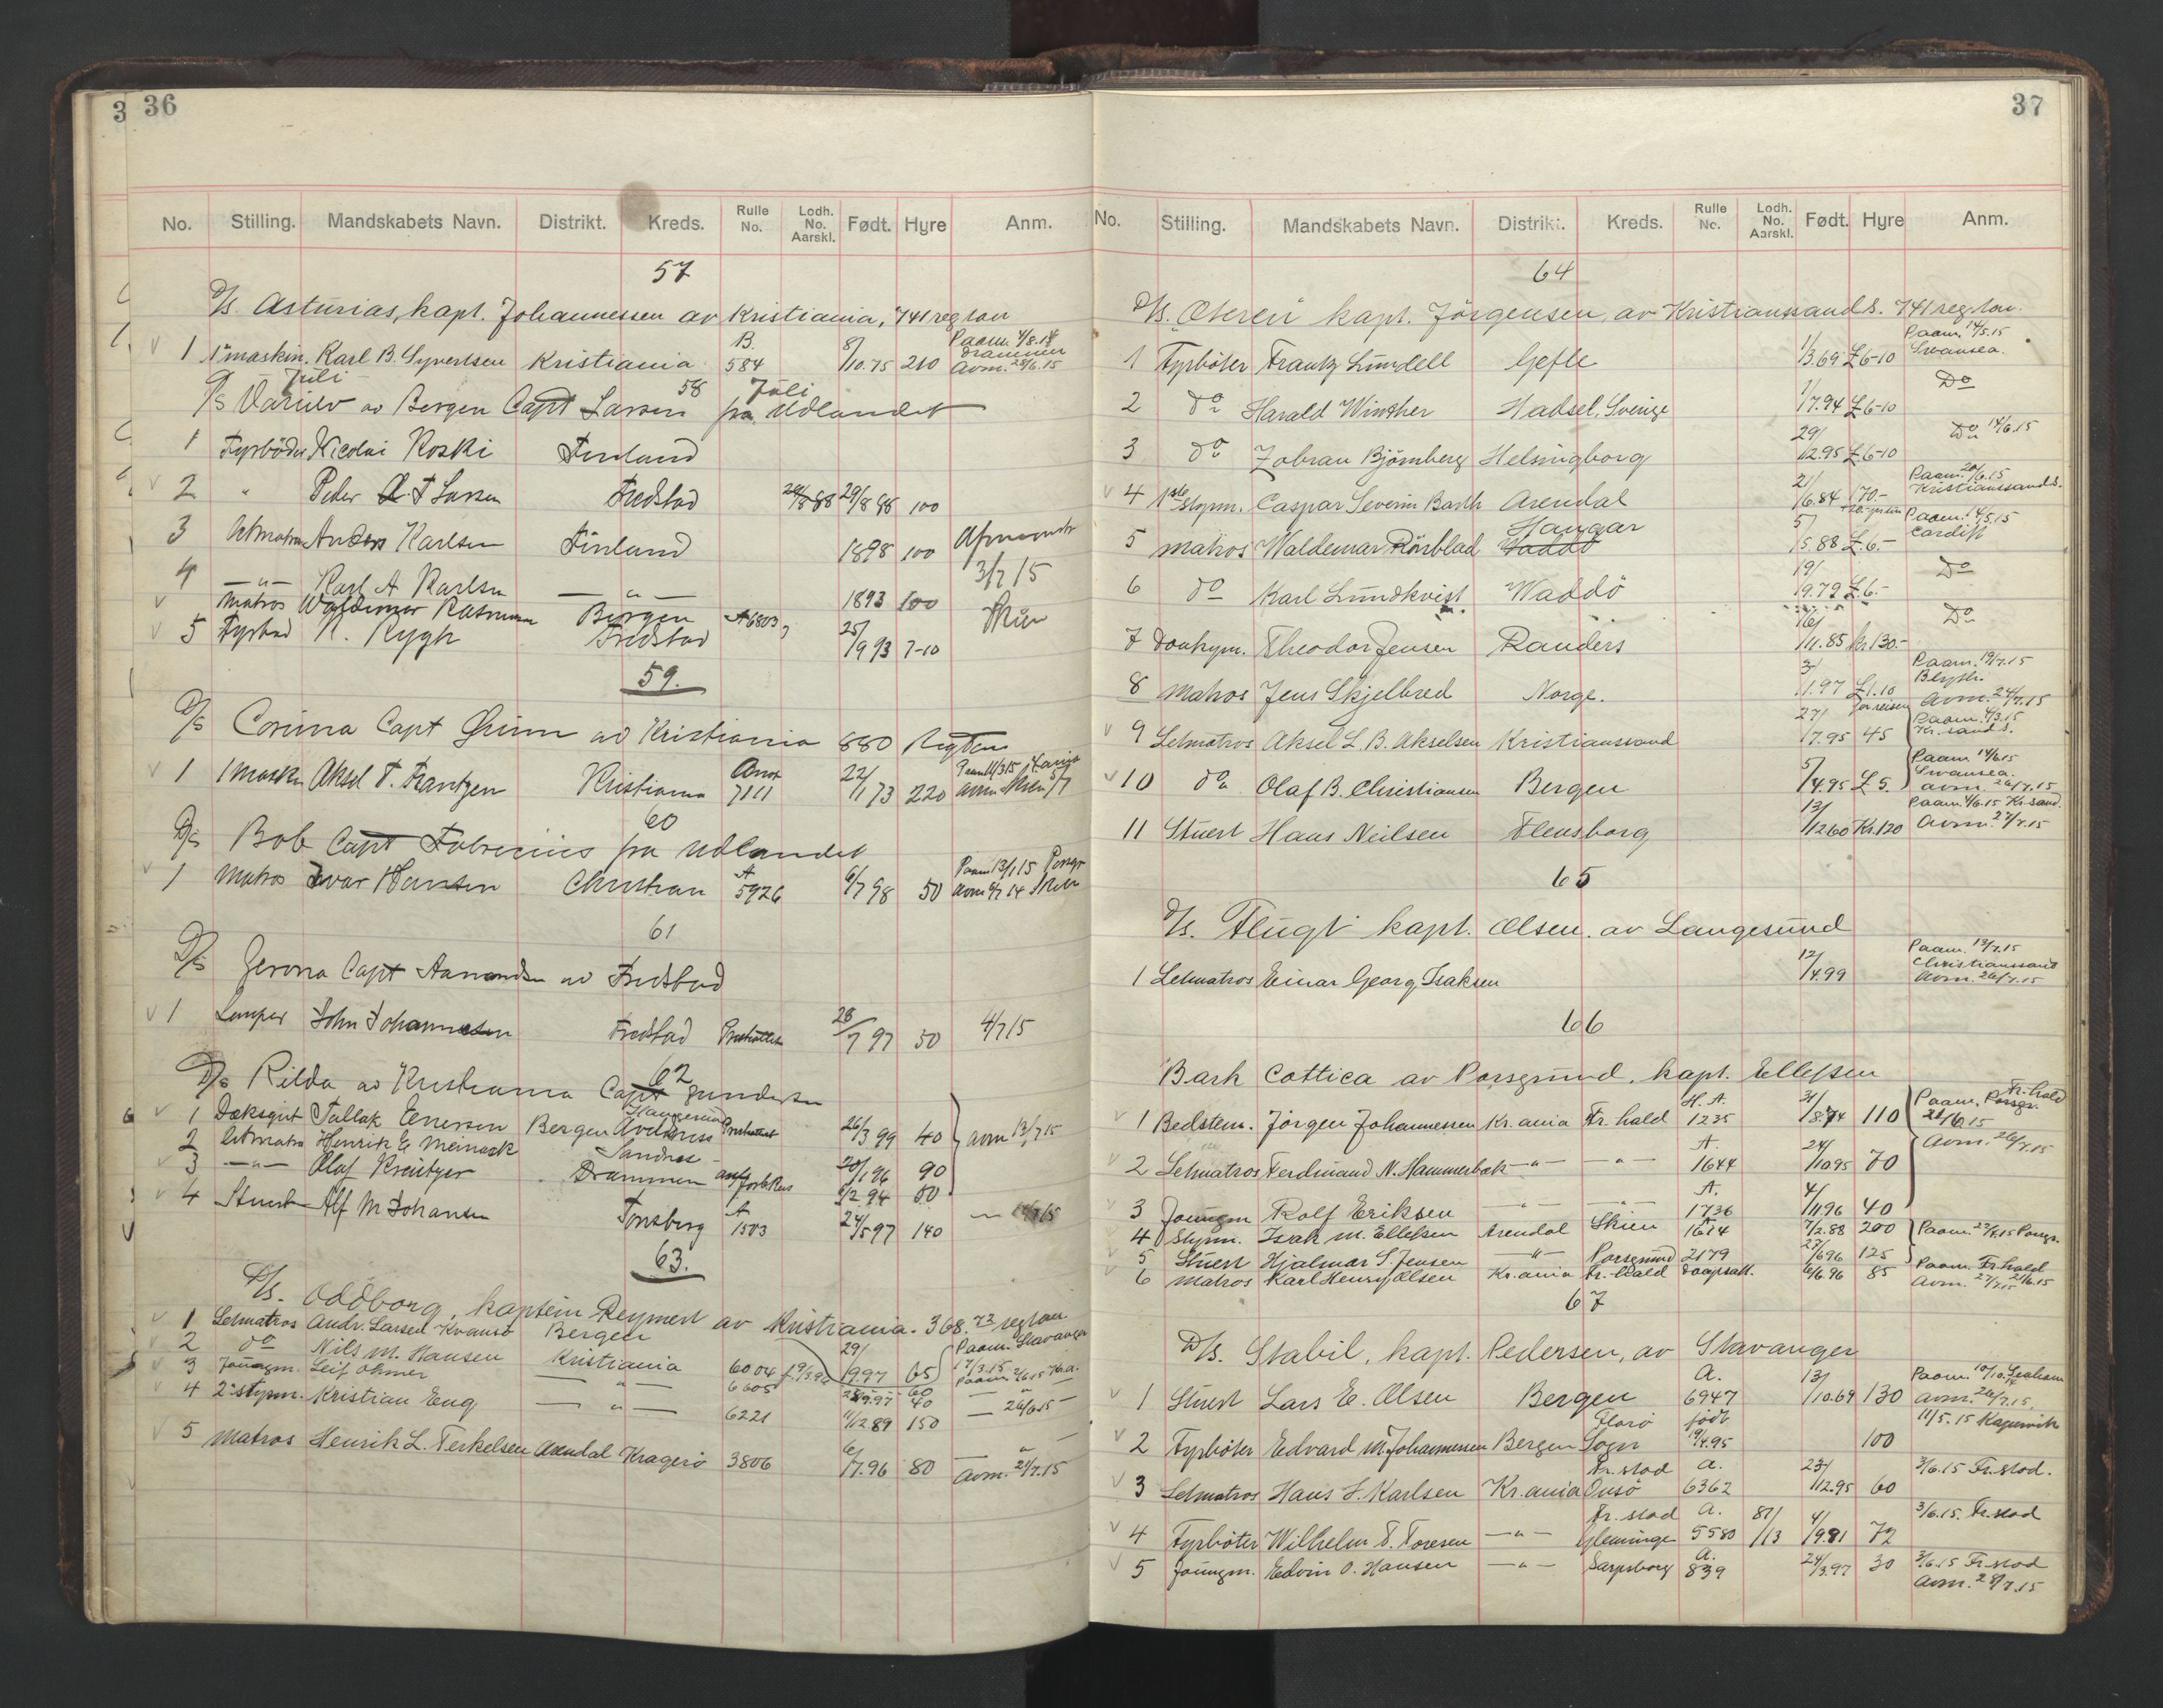 3 36
No. Stilling. Mandskabets Navn. Distrikt. Kreds. Rulle No. Lodh. No. Aarskl. Født. Hyre Anm.
57
D/s. Asturias, kapt. Johannessen av Kristiania, 741 reg ton
1 1ste maskin. Karl B. Syvertsen Kristiania B. 584 8/10.75 210 Paam. 4/8.14 Drammen Avm. 28/6.15
Juli 58 Juli
D/s Varulv av Bergen Capt Larsen fra Udlandet
1 Fyrbøder Nicolai Koski Finland
2 " Peder A F Larsen Fredstad 29/8 88 29/8 98 100
3 Letmatros Anders Karlsen Finland 1898 100 Afmønstr
4 —"— Karl A Karlsen —"— 1893 100 3/7 15
Matros Waldemar Rasmussen Bergen A 6803 Skien
5 Fyrbød K. Rygh Fredstad 25/9 93 7-10
59.
D/s Corinna Capt Grimm av Kristiania 880 Regtons
1 1 Maskin Aksel T. Frantzen Kristiania 7111 22/1 73 220
60
D/s Bob Capt Fabricius fra Udlandet
1 Matros Ivar Hansen Christian A 5926 6/7 98 50 Paam 13/1 15 Porsgr
61
D/s Gerona Capt Aamundsen av Fredstad
1 Lemper John Johannesen Fredstad 28/7 97 50 4/7 15
62
D/s Rilda av Kristiania Capt Gundersen
1 Dæksgut Tallak Eenersen Bergen Haugesund 26/3 99 40 avm 13/7 15
2 Letmatro Henrik E Meinack Sandnes 20/1 96 90
3 —"— Olaf Kreutzer Drammen 6/2 94 80
4 Stuert Alf M Johansen Tønsberg A 1503 24/5 97 140
63.
D/s. Oddborg, kaptein Reymert av Kristiania. 368.72 reg ton
1 Letmatros Andr. Larsen Kvamsø Bergen 29/9.97 65 Paam. Stavanger 17/3.15
2 do Nils M. Hansen Kristiania 6004 60
3 Jungm. Leif Ohmer —"— 6605 28/9.97 40 —"—
4 2. styrm. Kristian Eng —"— 6221 11/12 89 150 — 26/6 15 —
5 Matros Henrik L. Terkelsen Arendal Kragerø 3806 6/7.96 80 —"— Avm. 21/7.15
37
No. Stilling. Mandskabets Navn. Distrikt. Kreds. Rulle No. Lodh. No. Aarskl. Født. Hyre Anm.
64
D/s. Oteren kapt. Jörgensen, av Kristianssand S. 741 reg. ton.
1 Fyrbøter Frantz Lundell Gefle 1/3 69 £6-10 Paam. 14/5.15 Swansea.
2 do Harald Winther Hadsel, Sverige 1/7.94 £6-10 Do
3 do Zobrau Björnberg Helsingborg 29/12.95 £6-10 Do 14/6.15
4 1ste styrm. Caspar Severin Barth Arendal 21/6.84 170.- Paam. 20/6.15 Kristianssand S.
5 Matros Waldemar Rörblad Waddö Haugar 5/5.88 £6.- Paam. 14/5.15 Cardiff
6 do Karl Lundkvist Waddö 19/9.79 £6.- Do
7 Donkym. Theodor Jensen Randers 16/11.85 kr 130.- Do
8 Matros Jens Skjelbred Norge. 3/1.97 £1.10 for reisen Paam. 19/7.15 Blyth. Avm. 24/7.15
9 Letmatros Aksel L. B. Akselsen Kristianssand 27/7.95 45 Paam. 4/3.15 Kr.sand S.
10 do Olaf B. Christiansen Bergen 5/4.95 £5. Paam 14/6 15 Swansea. avm. 26/7.15
11 Stuert Hans Neilsen Flensborg 13/12 60 Kr. 120 Paam. 4/6.15 Kr. sand. Avm. 27/7.15
65
D/s. Flugt kapt. Olsen. av Langesund
1 Letmatros Einar Georg Isaksen 12/4.99 Paam. 13/7.15 Christianssand Avm. 26/7.15
66
Bark Cottica av Porsgrund, kapt. Ellefsen
1 Bedstem. Jörgen Johannessen Kr.ania Fr.hald H. A. 1235 31/8.74 110 Paam. Fr.hald Porsgr. 21/6.15
2 Letmatros Ferdinand N. Hammerbæk —"— —"— A. 1644 24/10 95 70 Avm. 26/7.15
3 Joungm Rolf Eriksen —"— —"— A. 1736 4/11.96 40
4 Styrm. Isak M. Ellefsen Arendal Skien 1614 7/2.88 200 Paam. Porsgr.
5 Stuert Hjalmar S. Jensen —"— Porsgrund 2179 27/6 96 125
6 Matros Karl Henry Olsen Kr.ania Fr.hald Daapsatt. 6/6.96 85 Paam. Fr.hald 21/6.15 Avm. 27/7.15
67
D/s. Stabil, kapt. Pedersen, av Stavanger
1 Stuert Lars E. Olsen Bergen A. 6947 13/10.69 130 Avm. 26/7.15.
2 Fyrbøter Edvard M. Johannessen Bergen Florø Sogn født 19/4.95 100 11/5.15
3 Letmatros Hans L. Karlsen Kr.ania Fr.stad Onsø A. 6362 23/12.95 60 3/6.15 Fr.stad.
4 Fyrbøter Wilhelm T. Toresen —"— Fr.stad Glemminge A. 5580 87/13 4/9 91 72 3/6.15. Fr.stad
5 Joungm. Edvin O. Hansen —"— Sarpsborg A. 839 24/3.97 30 3/6.15 Fr.stad Avm. 28/7.15